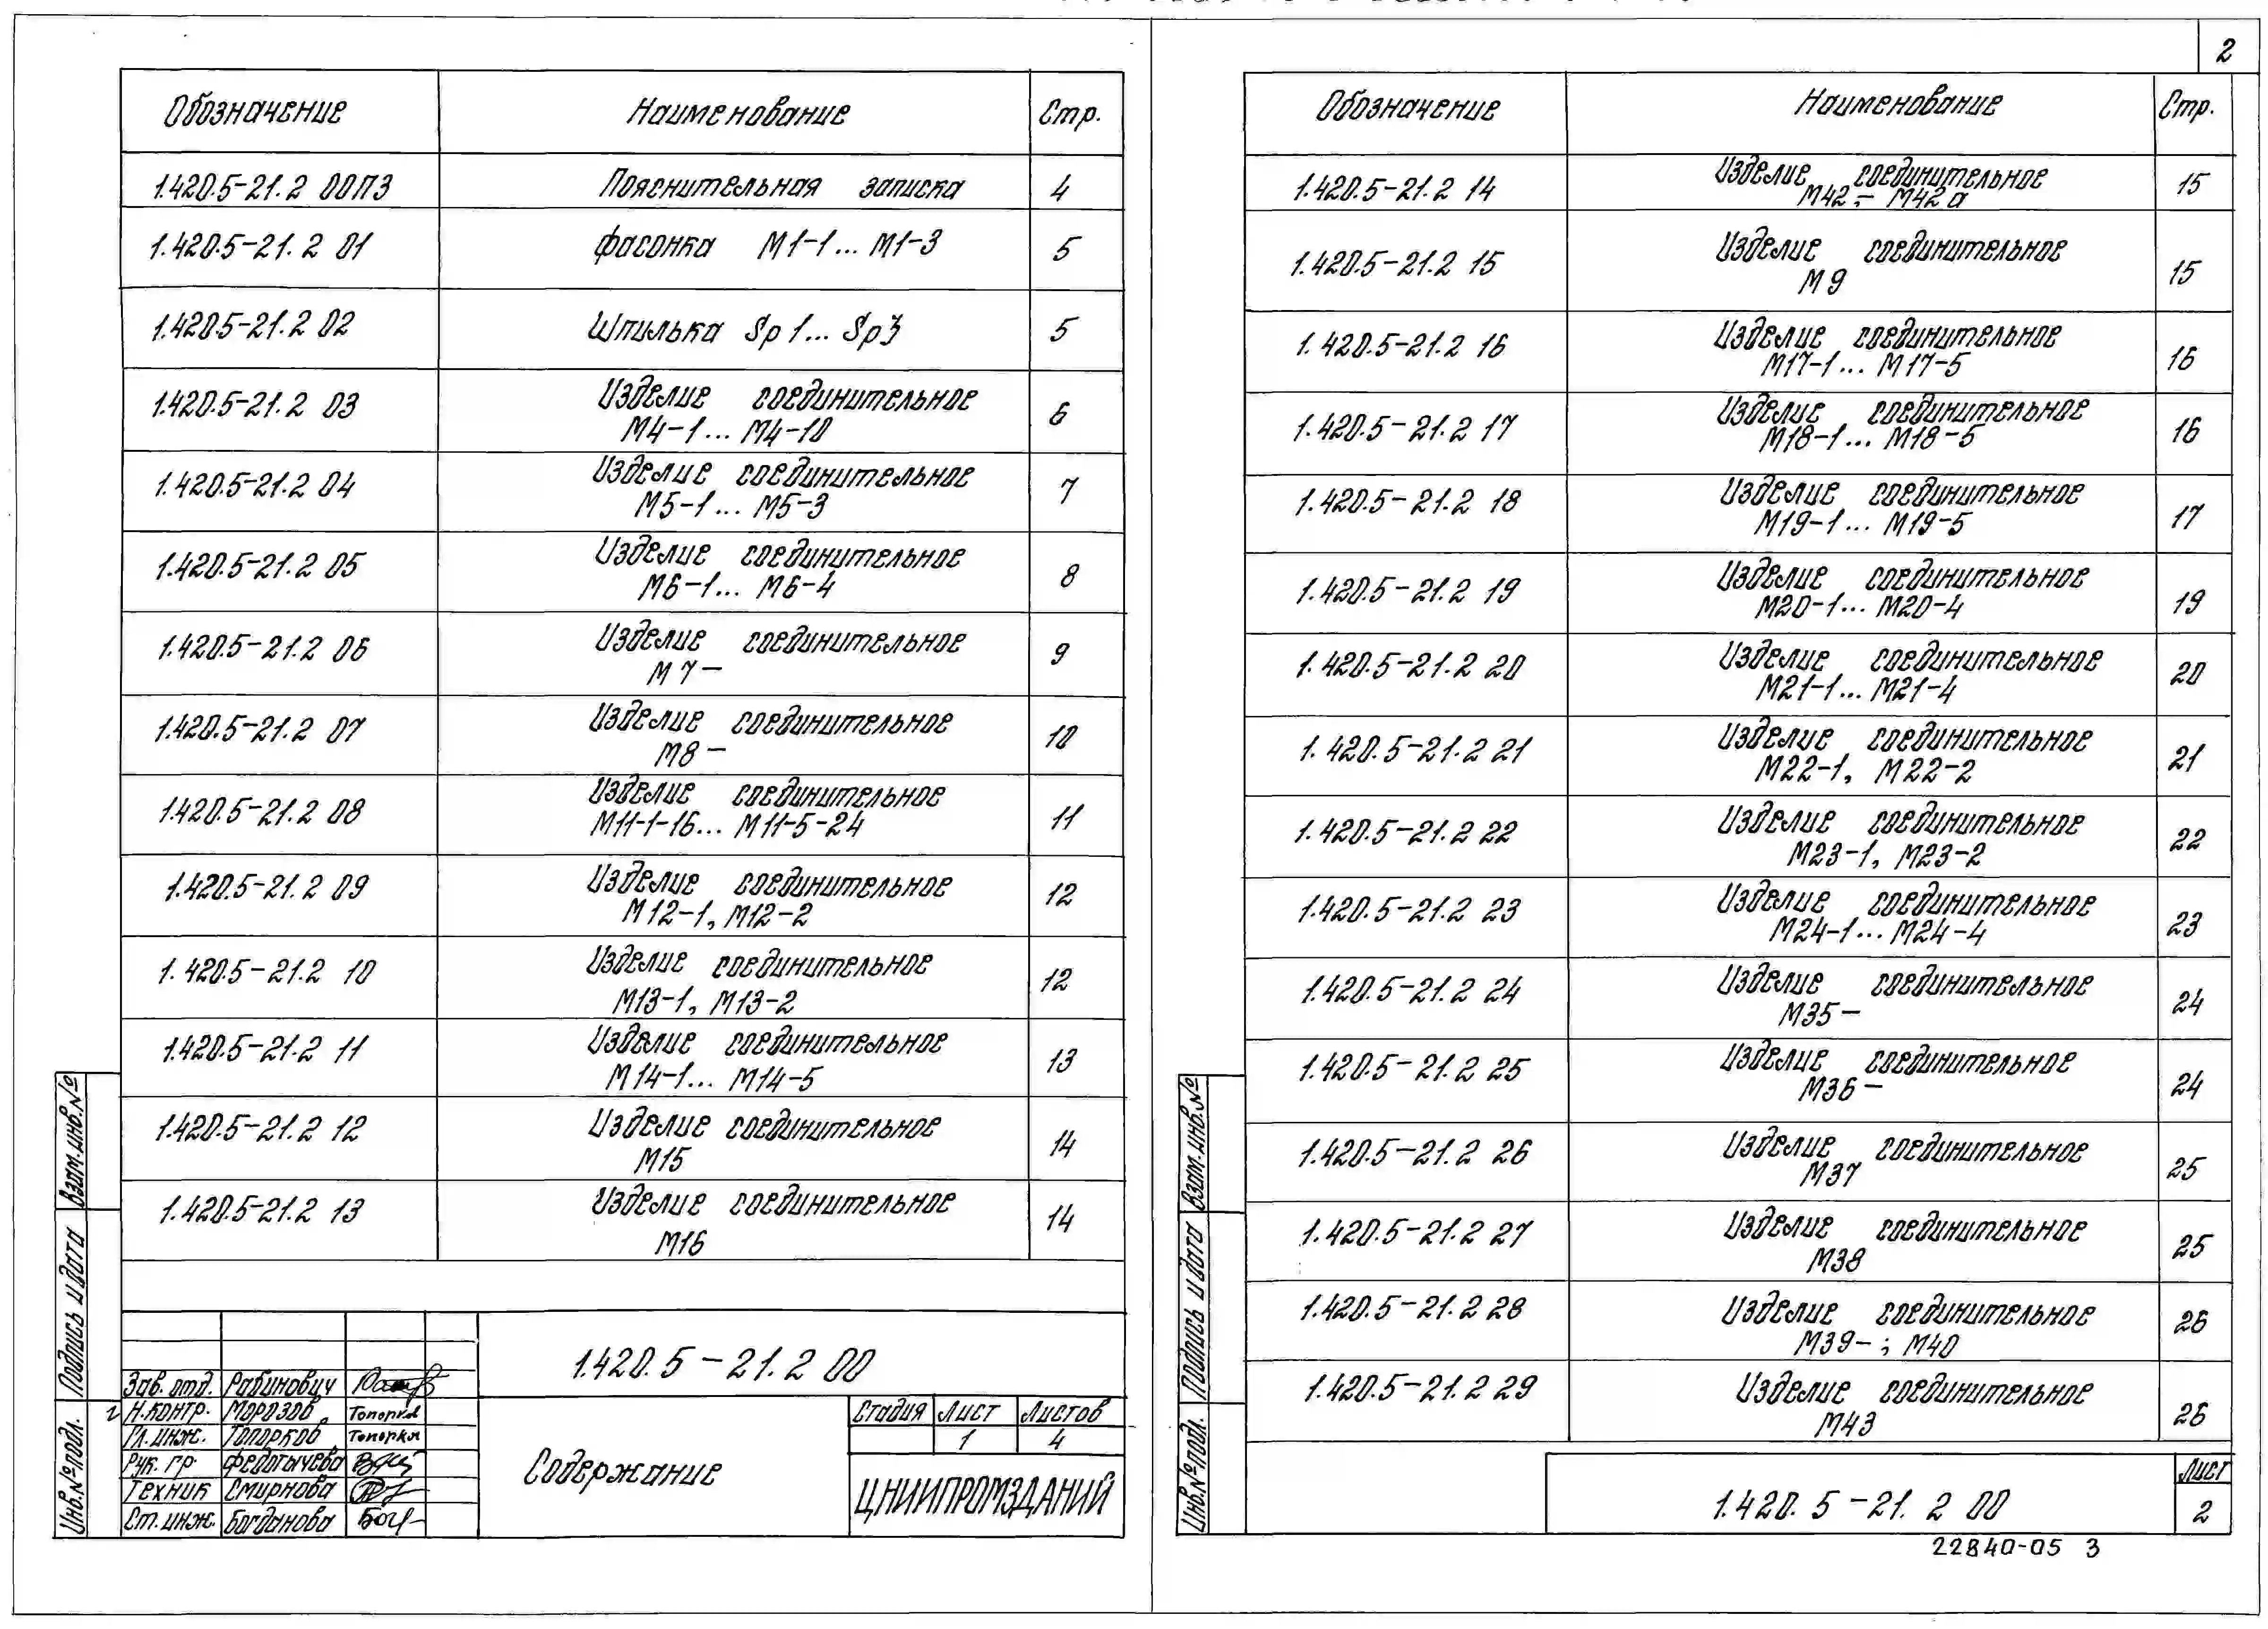 Обозначение Наименование Стр.
1.420.5-21.2 00ПЗ Пояснительная записка 4
1.420.5-21.2 01 Фасонка М1-1... М1-3 5
1.420.5-21.2 02 Шпилька Sp1... Sp3 5
1.420.5-21.2 03 Изделие соединительное 6
М4-1... М4-10
1.420.5-21.2 04 Изделие соединительное 7
М5-1... М5-3
1.420.5-21.2 05 Изделие соединительное 8
М6-1... М6-4
1.420.5-21.2 06 Изделие соединительное 9
М7-
1.420.5-21.2 07 Изделие соединительное 10
М8-
1.420.5-21.2 08 Изделие соединительное 11
М11-1-16... М11-5-24
1.420.5-21.2 09 Изделие соединительное 12
М12-1, М12-2
1.420.5-21.2 10 Изделие соединительное 12
М13-1, М13-2
1.420.5-21.2 11 Изделие соединительное 13
М14-1... М14-5
1.420.5-21.2 12 Изделие соединительное 14
М15
1.420.5-21.2 13 Изделие соединительное 14
М16
1.420.5-21.2 00
Зав. отд. Рабинович
Н.контр. Морозов Топорков
Гл.инж. Топорков Топорков
Рук. гр. Федотычева
Техник Смирнова
Ст.инж. Богданова Богд
Содержание
Стадия Лист Листов
1 4
ЦНИИПРОМЗДАНИЙ
Взам.инв.№
Подпись и дата
Инв.№подл.
2
Обозначение Наименование Стр.
1.420.5-21.2 14 Изделие соединительное 15
М42-; М42а
1.420.5-21.2 15 Изделие соединительное 15
М9
1.420.5-21.2 16 Изделие соединительное 16
М17-1... М17-5
1.420.5-21.2 17 Изделие соединительное 16
М18-1... М18-5
1.420.5-21.2 18 Изделие соединительное 17
М19-1... М19-5
1.420.5-21.2 19 Изделие соединительное 19
М20-1... М20-4
1.420.5-21.2 20 Изделие соединительное 20
М21-1... М21-4
1.420.5-21.2 21 Изделие соединительное 21
М22-1, М22-2
1.420.5-21.2 22 Изделие соединительное 22
М23-1, М23-2
1.420.5-21.2 23 Изделие соединительное 23
М24-1... М24-4
1.420.5-21.2 24 Изделие соединительное 24
М35-
1.420.5-21.2 25 Изделие соединительное 24
М36-
1.420.5-21.2 26 Изделие соединительное 25
М37
1.420.5-21.2 27 Изделие соединительное 25
М38
1.420.5-21.2 28 Изделие соединительное 26
М39-; М40
1.420.5-21.2 29 Изделие соединительное 26
М43
1.420.5-21.2 00
Лист
2
Взам.инв.№
Подпись и дата
Инв.№подл.
22840-05 3